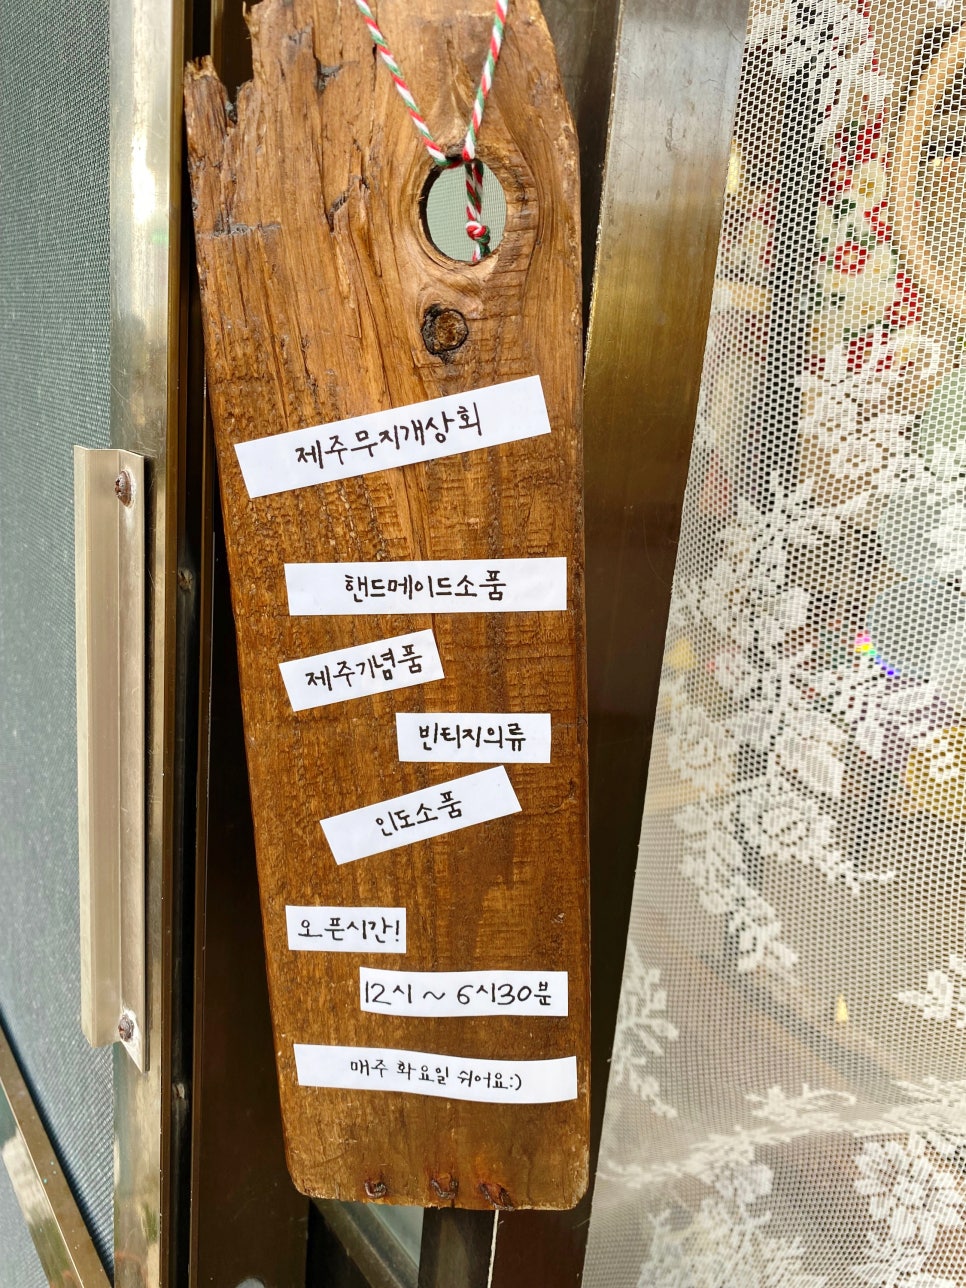 제주무지개상회
핸드메이드소품
제주기념품
빈티지의류
인도소품
오픈시간!
12시 ~ 6시30분
매주 화요일 쉬어요:)